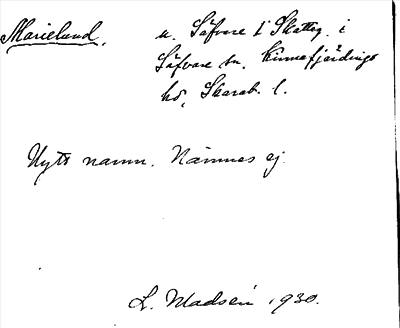 Marielund. u. Säfvare 1 Skatteg. i
Säfvare sn. Kinnefjärdings
hd, Skarab. l.
Nytt namn. Nämnes ej.
L. Madsén 1930.